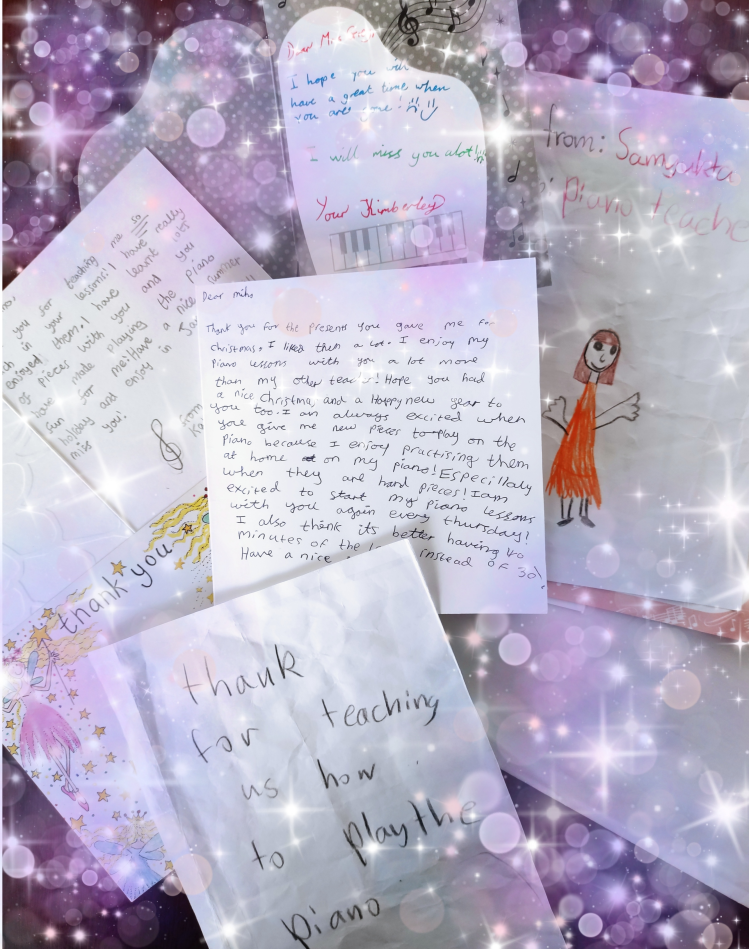 Dear
I hope you
have a great time when
you are
I will miss you alot!!!
Your Kimberley
from: Samyukta
piano teache
you for teaching me so
in your lessons! I have really
enjoyed them. I have learnt lots
of pieces with you and you
have make playing the piano
fun for me! Have a nice summer
holiday and enjoy in
miss you!
from
Dear miho
Thank you for the presents you gave me for
christmas. I liked then a lot. I enjoy my
Piano lessons with you a lot more
than my other teacher! Hope you had
a nice Christma and a Happy new year to
you too. I am always excited when
you give me new pieces to play on the
Piano because I enjoy practising them
at home on my piano! Especillaly
when they are hard pieces! I am
excited to start my piano lessons
with you again every thursdays!
I also think its better having 40
minutes of the instead of 30!
Have a nice
thank you
thank
for teaching
us how
to play the
piano